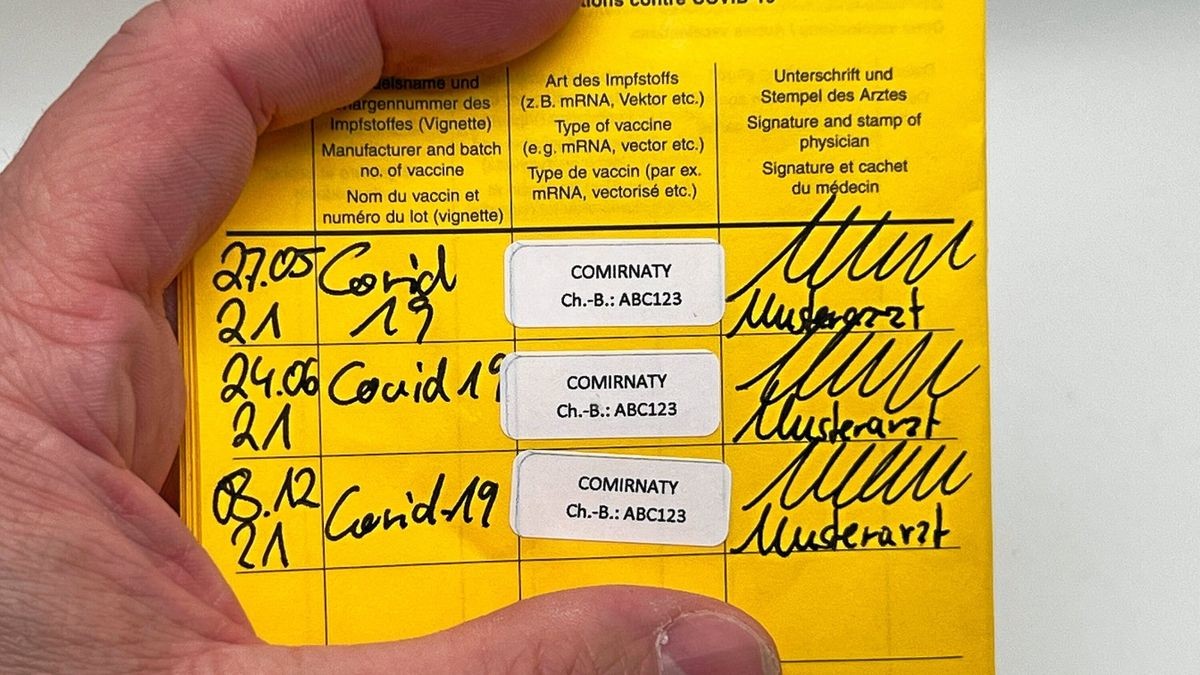 contre COVID-19
elsname und
argennummer des
Impfstoffes (Vignette)
Manufacturer and batch
no. of vaccine
Nom du vaccin et
numéro du lot (vignette)
Art des Impfstoffs
(z.B. mRNA, Vektor etc.)
Type of vaccine
(e.g. mRNA, vector etc.)
Type de vaccin (par ex.
mRNA, vectorisé etc.)
Unterschrift und
Stempel des Arztes
Signature and stamp of
physician
Signature et cachet
du médecin
27.05
21
Covid
19
COMIRNATY
Ch.-B.: ABC123
Musterarzt
24.06
21
Covid 19
COMIRNATY
Ch.-B.: ABC123
Musterarzt
08.12
21
Covid-19
COMIRNATY
Ch.-B.: ABC123
Musterarzt